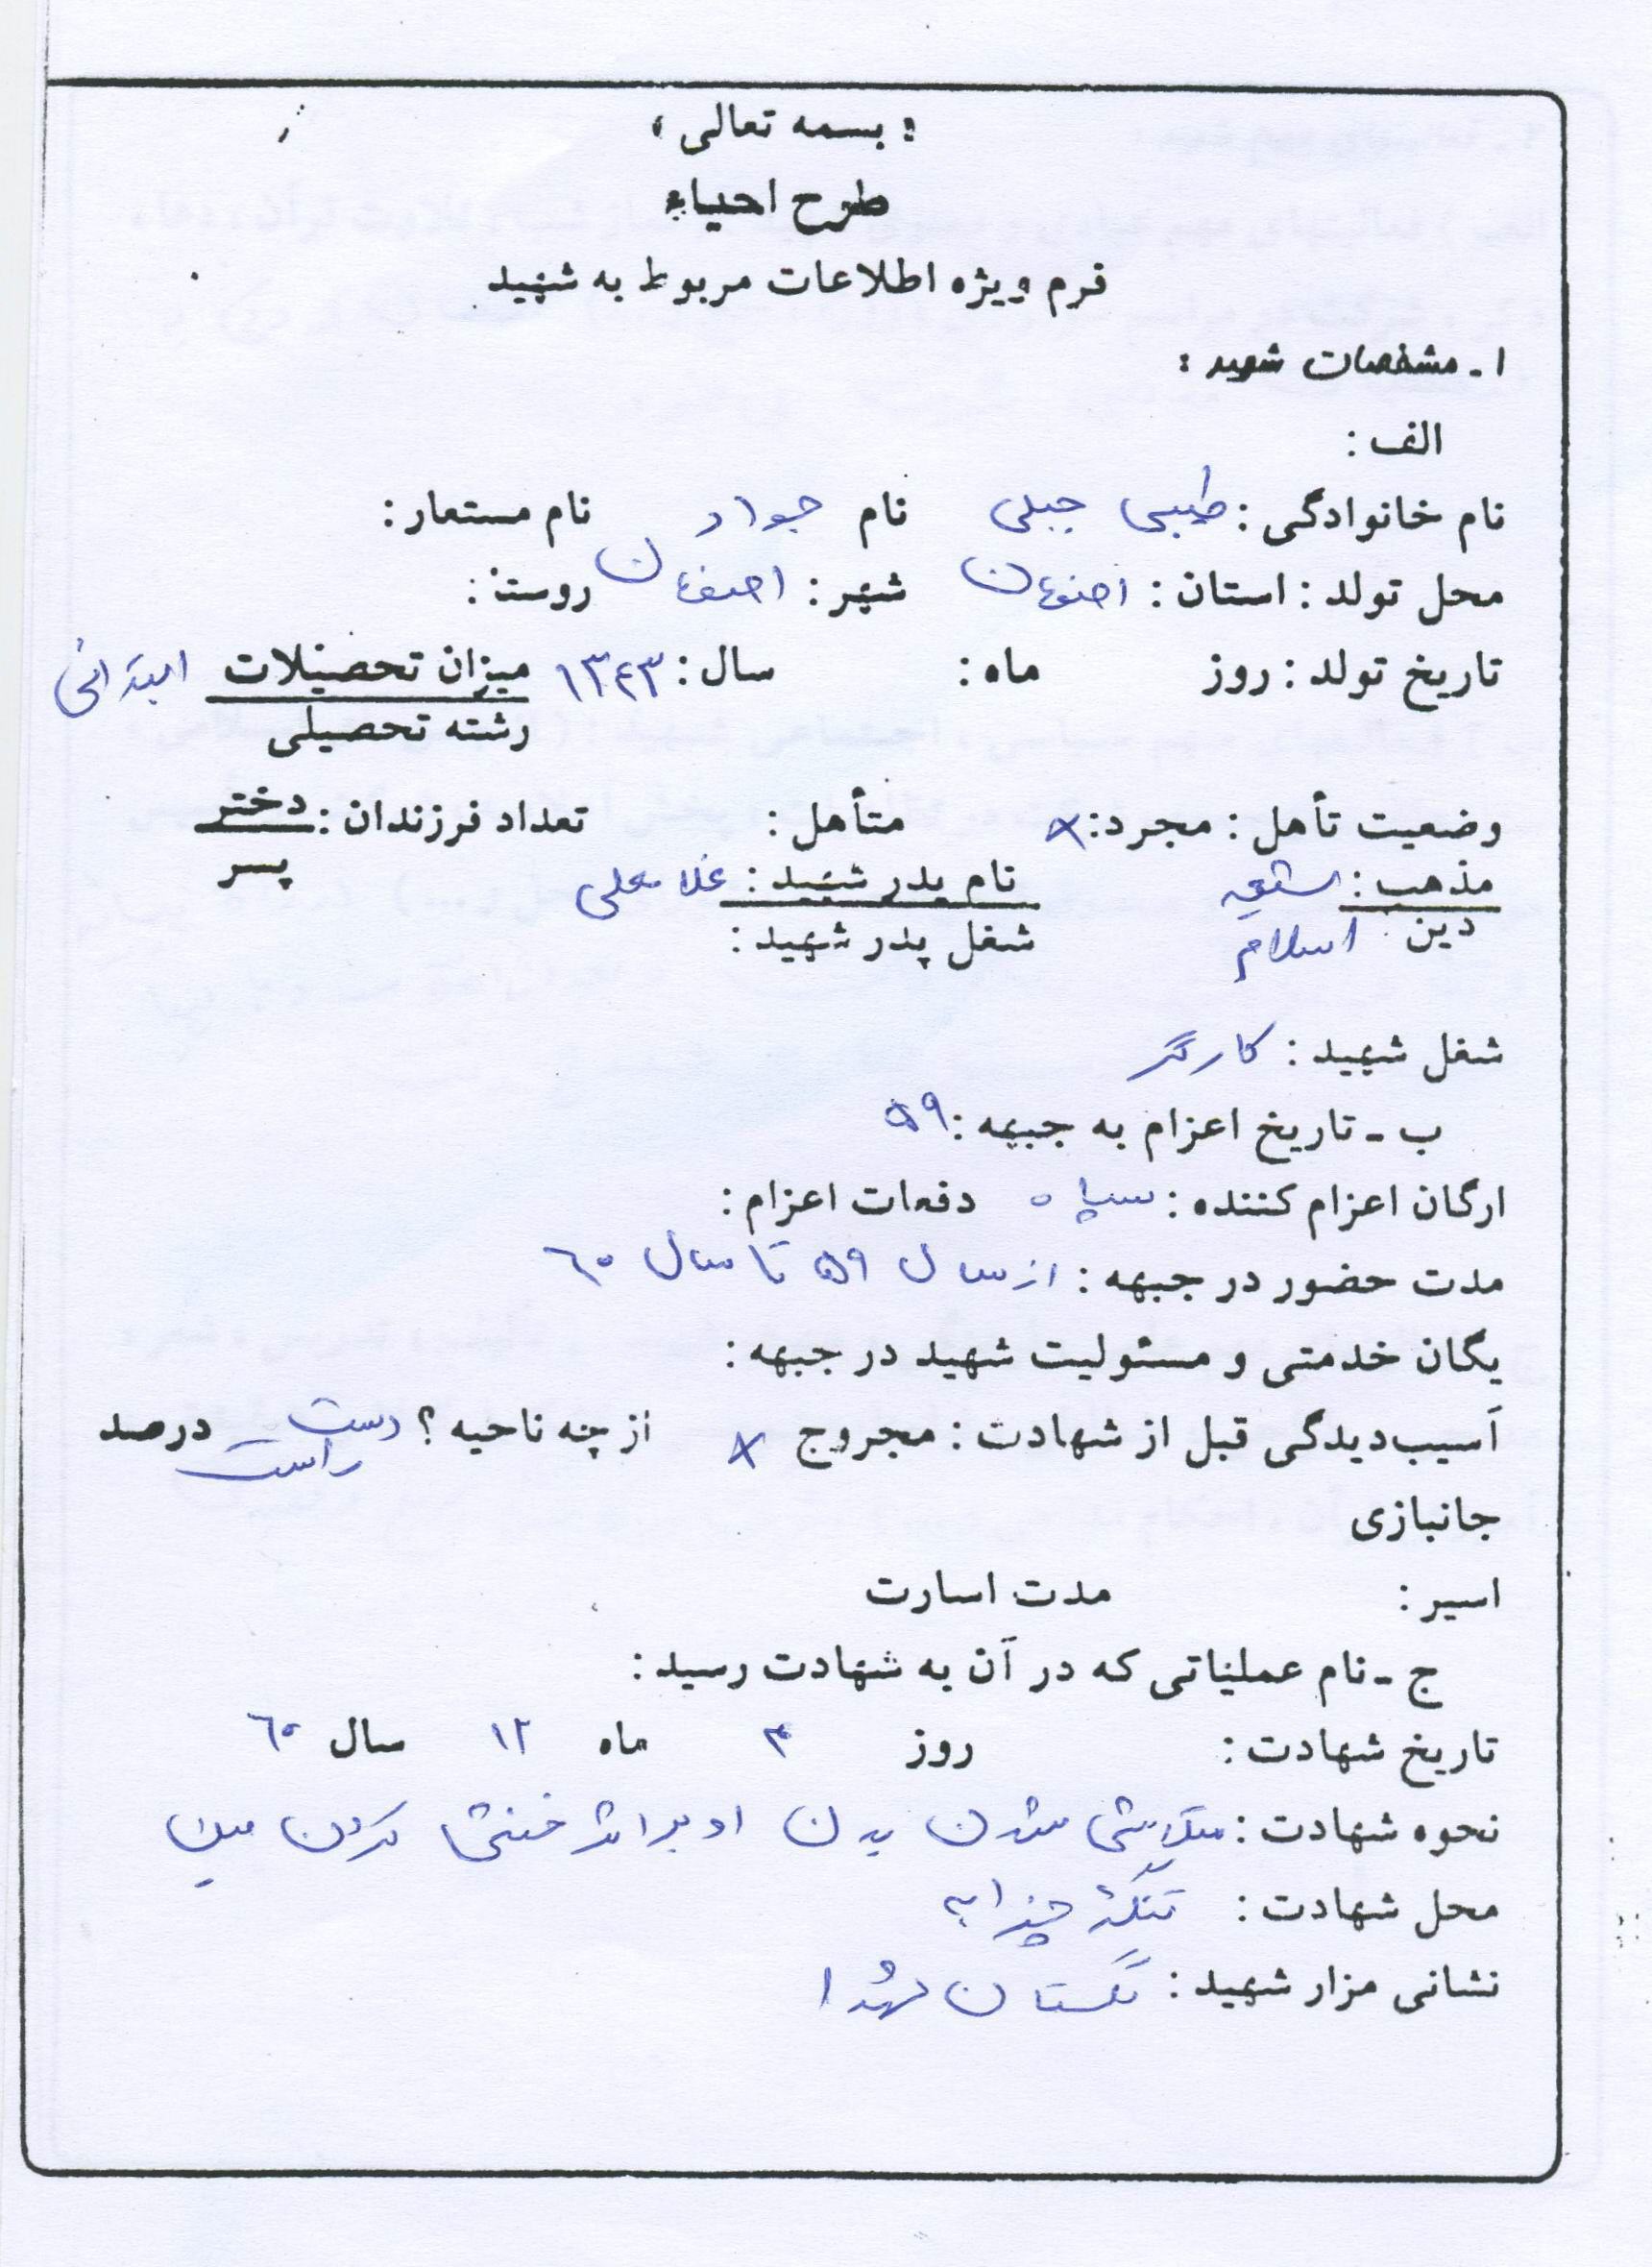 « بسمه تعالی »
طرح احیاء
فرم ویژه اطلاعات مربوط به شهید
۱ـ مشخصات شهید :
الف :
نام خانوادگی : طیبی جبلی نام جواد نام مستعار :
محل تولد : استان : اصفهان شهر : اصفهان روستا :
تاریخ تولد : روز ماه : سال : ۱۳۴۳ میزان تحصیلات ابتدائی
رشته تحصیلی
وضعیت تأهل : مجرد : × متأهل : تعداد فرزندان : دختر
پسر
مذهب : شیعه نام پدر شهید : غلامعلی
دین اسلام شغل پدر شهید :
شغل شهید : کارگر
ب ـ تاریخ اعزام به جبهه : ۵۹
ارگان اعزام کننده : سپاه دفعات اعزام :
مدت حضور در جبهه : از سال ۵۹ تا سال ۶۰
یگان خدمتی و مسئولیت شهید در جبهه :
آسیب‌دیدگی قبل از شهادت : مجروح × از چه ناحیه ؟ دست راست درصد
جانبازی
اسیر : مدت اسارت
ج ـ نام عملیاتی که در آن به شهادت رسید :
تاریخ شهادت : روز ۳ ماه ۱۲ سال ۶۰
نحوه شهادت : متلاشی شدن بدن او بر اثر خنثی کردن مین
محل شهادت : تنگه چزابه
نشانی مزار شهید : گلستان شهدا